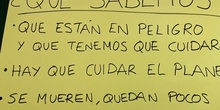 ¿QUÉ SABEMOS
• QUE ESTÁN EN PELIGRO
Y QUE TENEMOS QUE CUIDAR
• HAY QUE CUIDAR EL PLANE
• SE MUEREN, QUEDAN POCOS